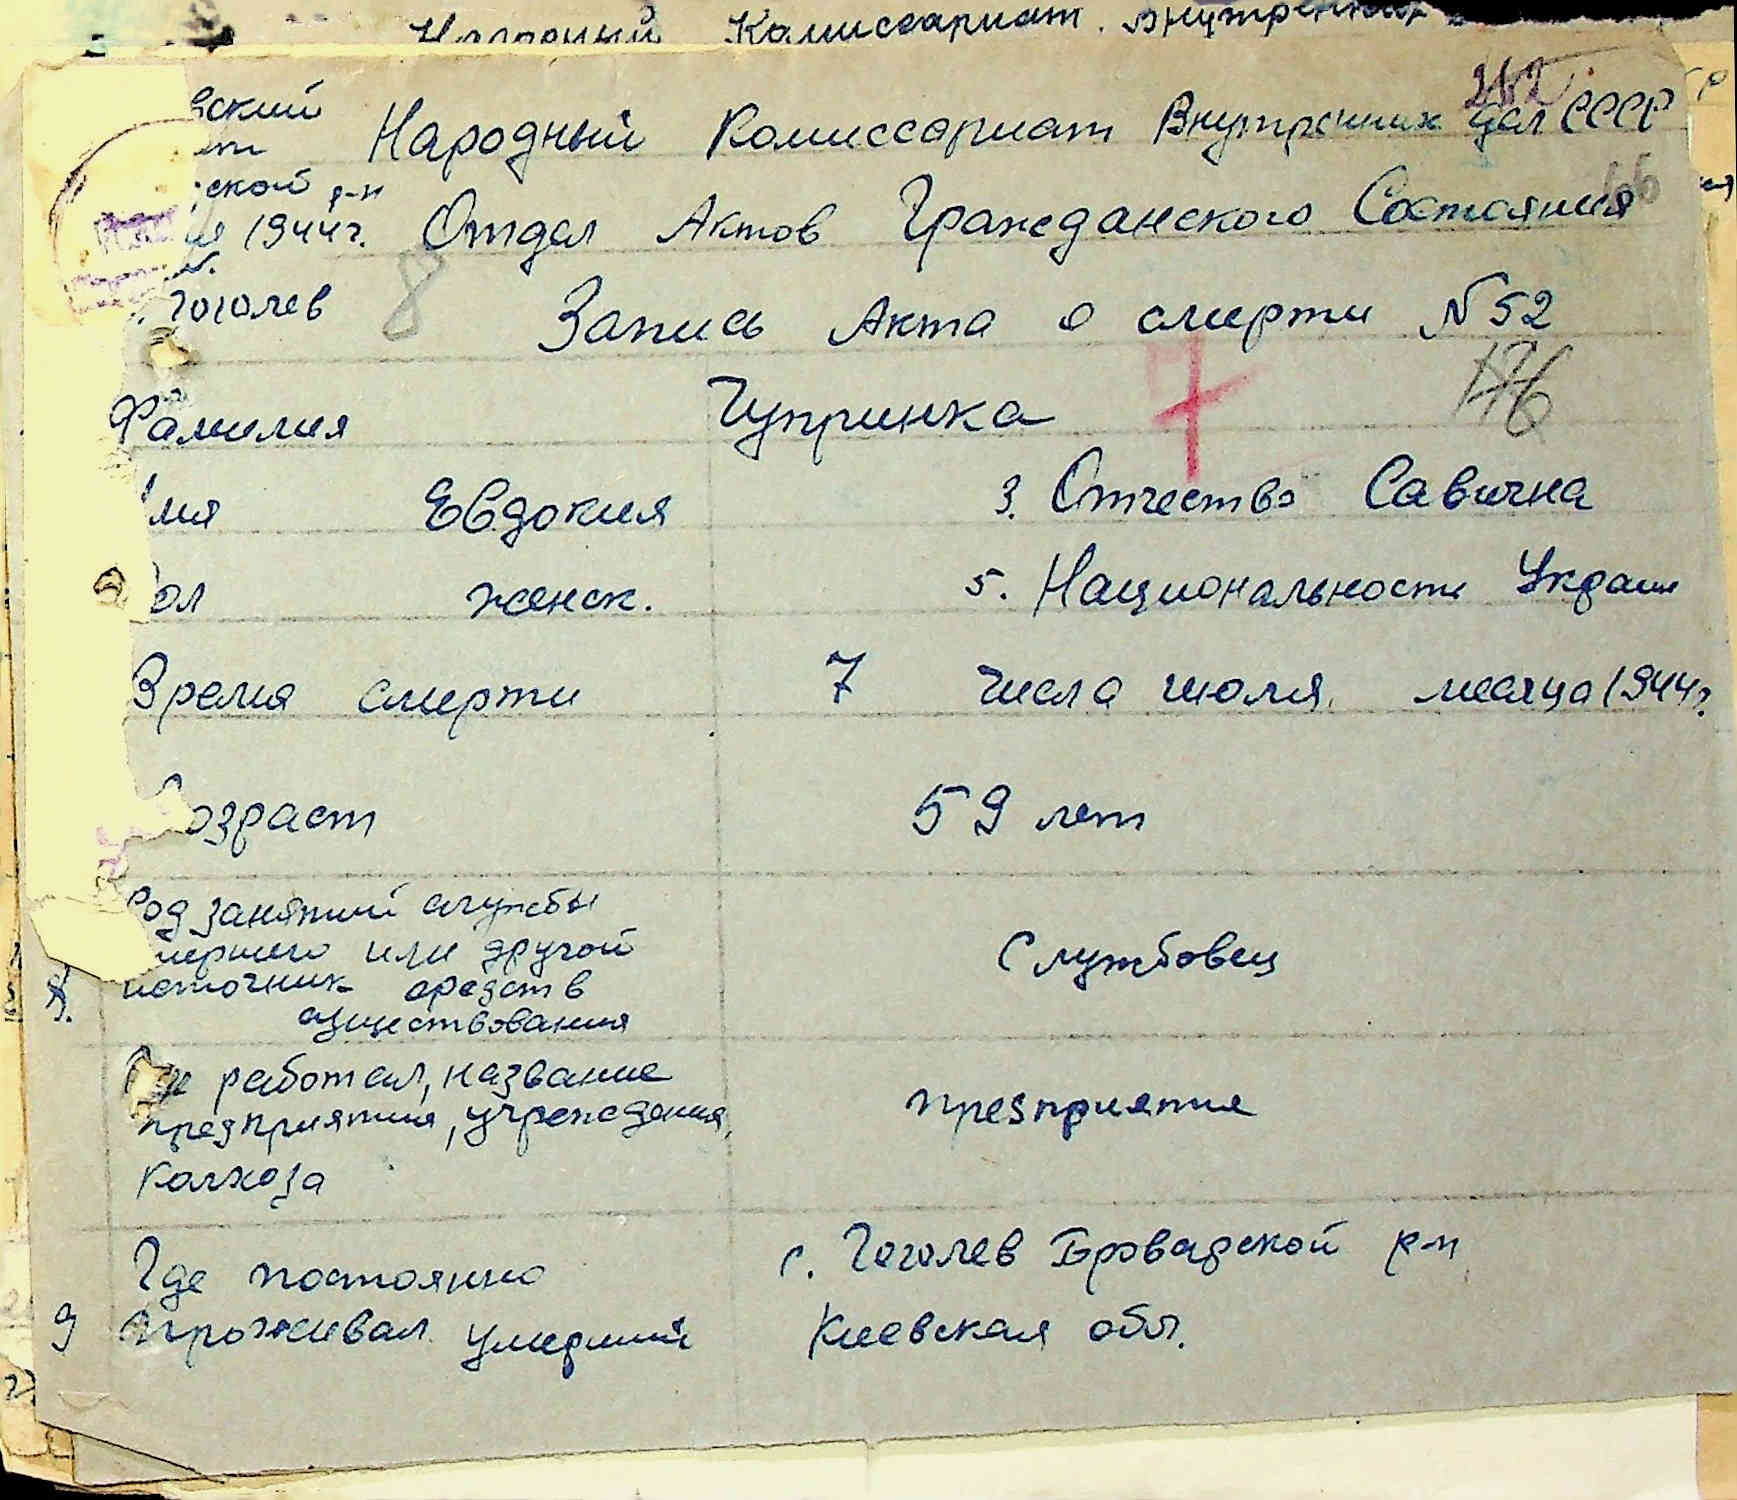 Народный Комиссариат Внутренних
Народный Комиссариат Внутренних Дел СССР
212
ский
ской р-н
1944 г. Отдел Актов Гражданского Состояния
Гоголев
8
Запись Акта о смерти N 52
Фамилия Чупринка
мя Евдокия 3. Отчество Савична
ол женск. 5. Национальность Украин
Время смерти 7 числа июля месяца 1944 г.
озраст 59 лет
Род занятий службы
умершего или другой
источник средств
существования
Службовец
8.
Где работал, название
предприятия, учреждения,
колхоза
предприятие
Где постоянно с. Гоголев Броварской р-н
9 проживал умерший Киевская обл.